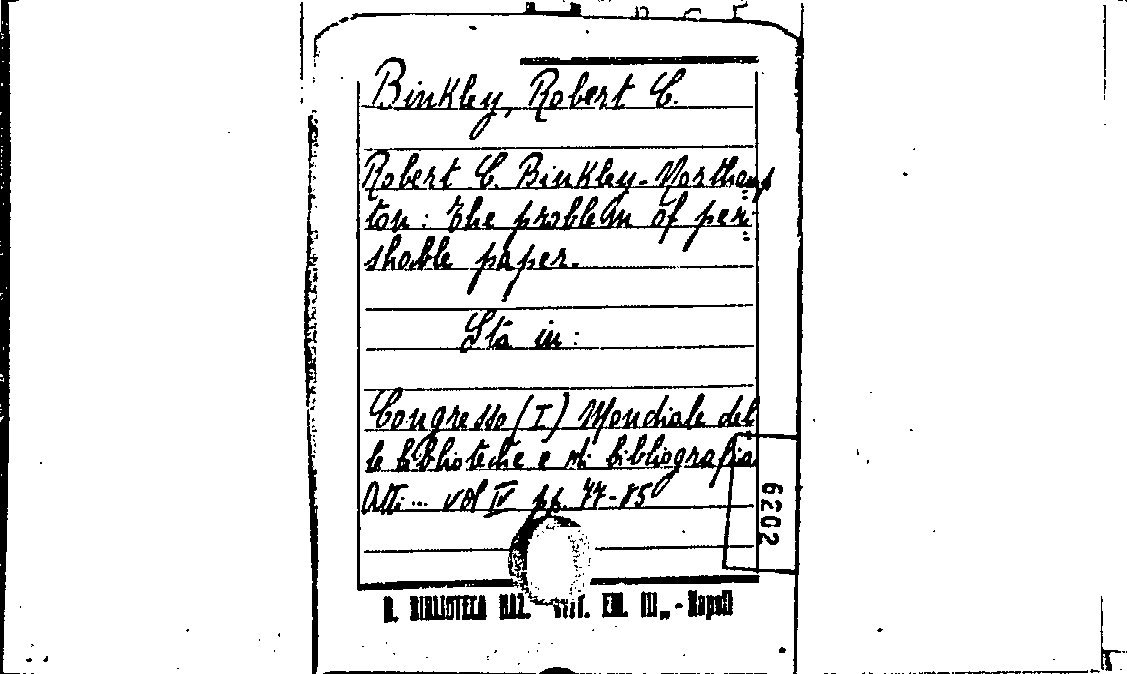 Binkley, Robert C.
Robert C. Binkley - Northamp
ton: The problem of peri
shable paper.
Sta in:
Congresso (I) Mondiale del
le biblioteche e di bibliografia
Atti... vol IV pp. 77-85
6202
R. BIBLIOTECA NAZ. VITT. EM. III„ - Napoli